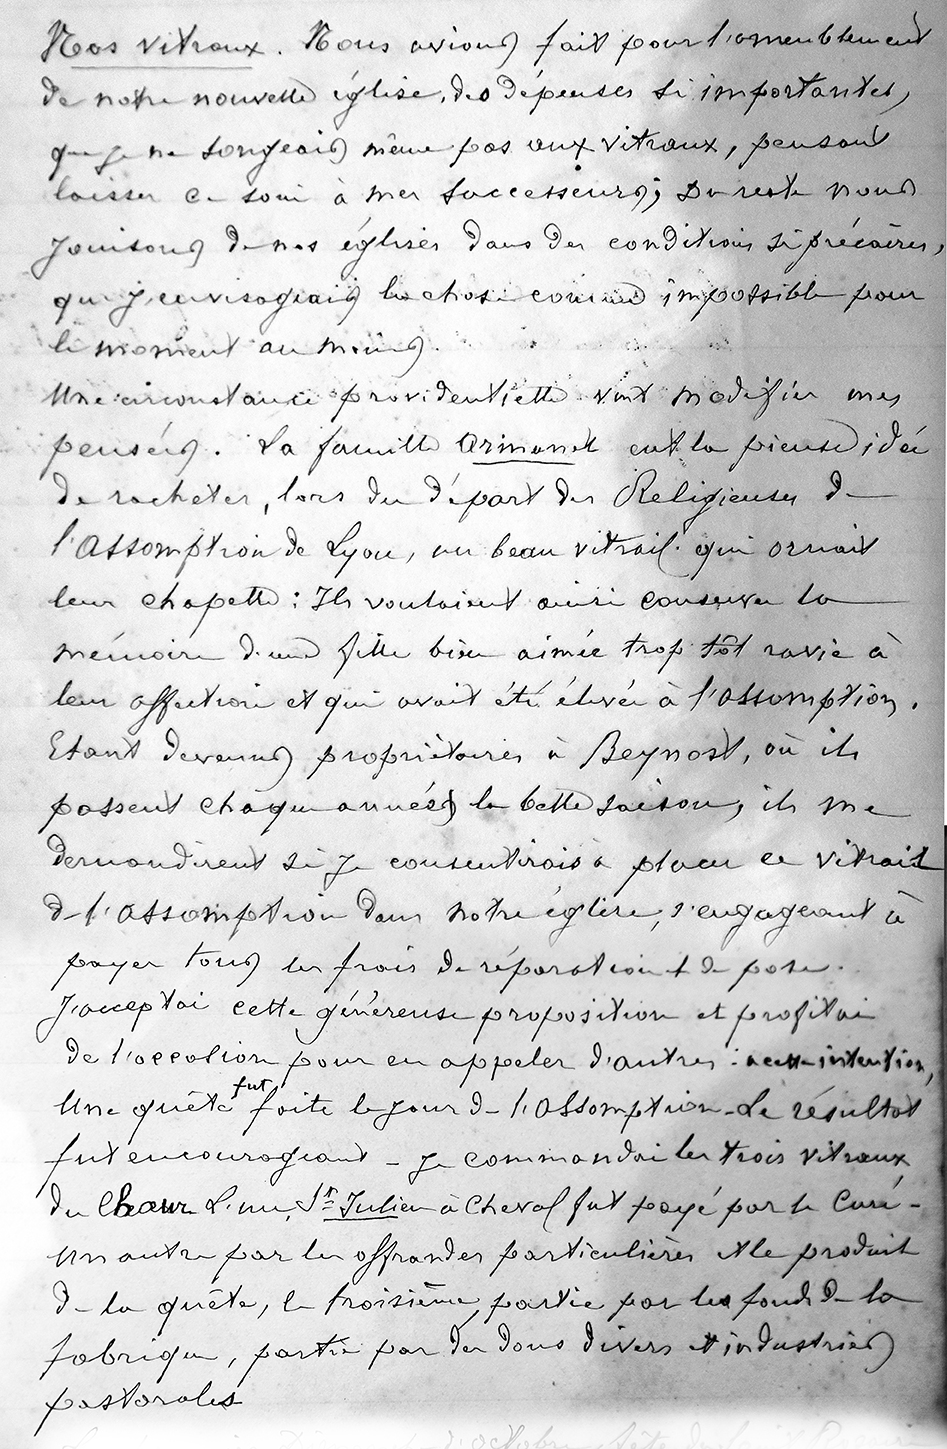 Nos vitraux. Nous avions fait pour l'ameublement
de notre nouvelle église, des dépenses si importantes,
que je ne songeais même pas aux vitraux, pensant
laisser ce soin à mes successeurs; Du reste nous
jouissons de nos églises dans des conditions si précaires,
que j'envisageais la chose comme impossible pour
le moment au moins.
Une circonstance providentielle vint modifier mes
pensées. La famille Armanet eut la pieuse idée
de racheter, lors du départ des Religieuses de
l'Assomption de Lyon, un beau vitrail qui ornait
leur chapelle: Ils voulaient ainsi conserver la
mémoire d'une fille bien aimée trop tôt ravie à
leur affection et qui avait été élevée à l'Assomption.
Etant devenus propriétaires à Beynost, où ils
passent chaque années la belle saison, ils me
demandèrent si je consentirais à placer ce vitrail
de l'Assomption dans notre église, s'engageant à
payer tous les frais de réparation et de pose.
J'acceptai cette généreuse proposition et profitai
de l'occasion pour en appeler d'autres. a cette intention,
Une quête fut faite le jour de l'Assomption - Le résultat
fut encourageant - je commandai les trois vitraux
du Chœur L'un, St Julien à Cheval fut payé par le Curé -
Un autre par les offrandes particulières et le produit
de la quête, le troisième, partie par les fonds de la
fabrique, partie par des dons divers et industries
pastorales